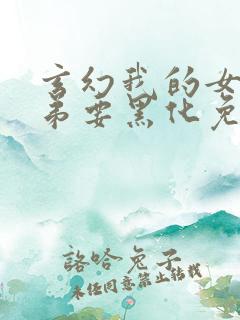 玄幻我的女
弟要黑化免
諮哈兔子
未经同意禁止转载